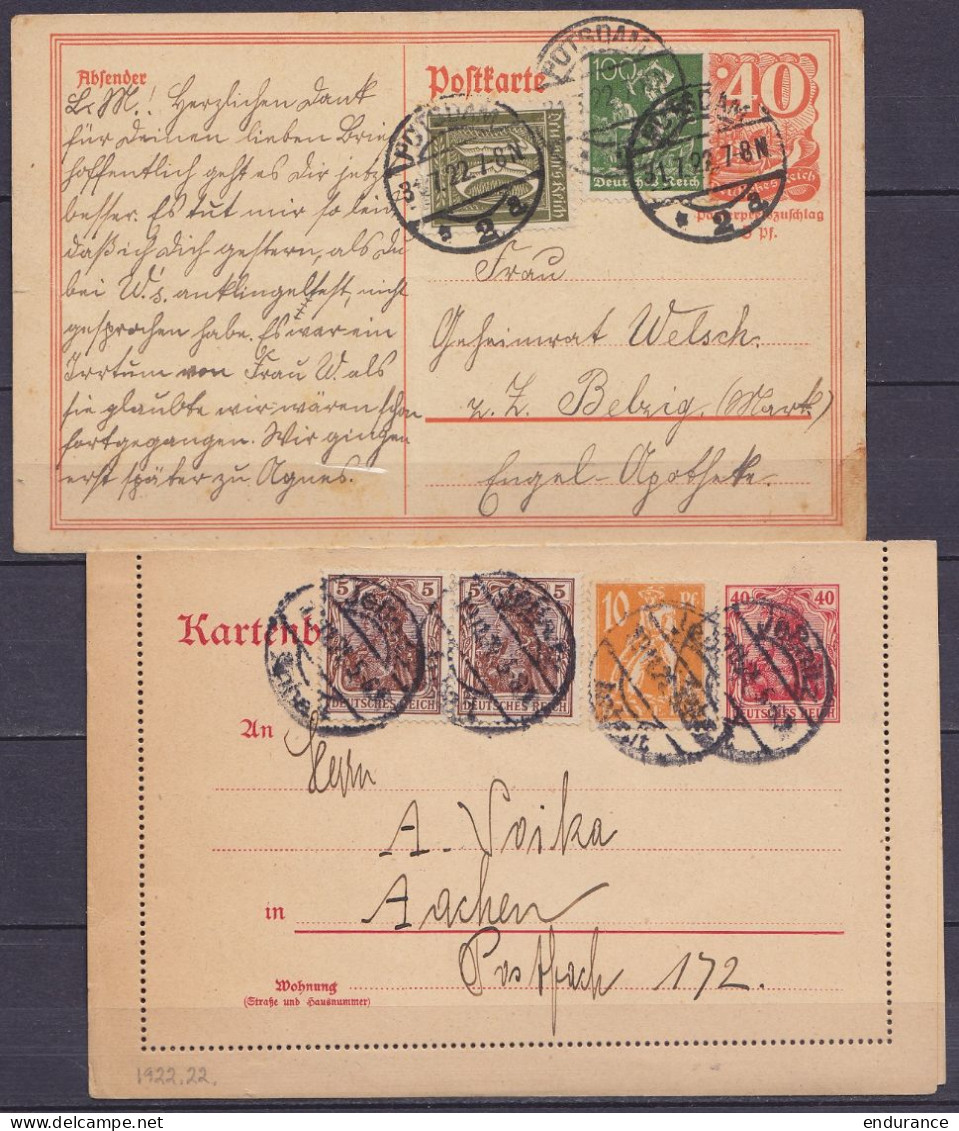 Absender
Postkarte
40
L. M.! Herzlichen Dank
für Deinen lieben Brief
hoffentlich geht es Dir jetzt
besser. Es tut mir so leid
daß ich Dich gestern, als Du
bei W's. anklingeltest, nicht
gesprochen habe. Es war ein
Irrtum von Frau W. als
sie glaubte wir wären schon
fortgegangen. Wir gingen
erst später zu Agnes.
POTSDAM
100
Deutsches Reich
POTSDAM
31.7.22.7-8N
* 2 a
Deutsches Reich
POTSDAM
31.7.22.7-8N
* 2 a
Frau
Geheimrat Welsch.
z. Z. Belzig, (Mark)
Engel-Apotheke.
Kartenb
5 5
DEUTSCHES REICH
5 5
DEUTSCHES REICH
10 Pf
40 40
DEUTSCHES REICH
An
Herrn
A. Voika
in
Aachen
Postfach 172.
Wohnung
(Straße und Hausnummer)
1922.22.
delcampe.net
endurance